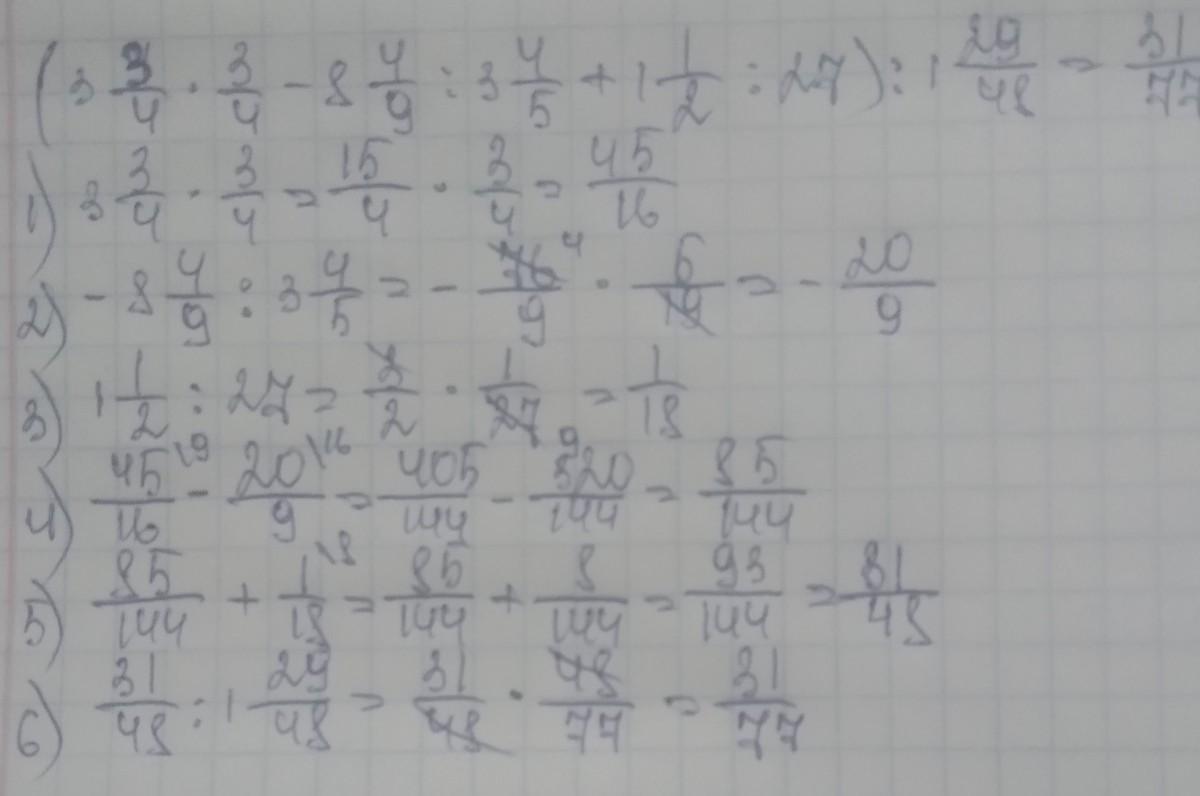 (3 3/4 · 3/4 - 8 4/9 : 3 4/5 + 1 1/2 : 27) : 1 29/48 = 31/77
1) 3 3/4 · 3/4 = 15/4 · 3/4 = 45/16
2) - 8 4/9 : 3 4/5 = - 76/9 4 · 5/19 = - 20/9
3) 1 1/2 : 27 = 3/2 · 1/27 = 1/18
4) 45/16 \9 - 20/9 \16 = 405/144 - 320/144 = 85/144
5) 85/144 + 1/18 \8 = 85/144 + 8/144 = 93/144 = 31/48
6) 31/48 : 1 29/48 = 31/48 · 48/77 = 31/77